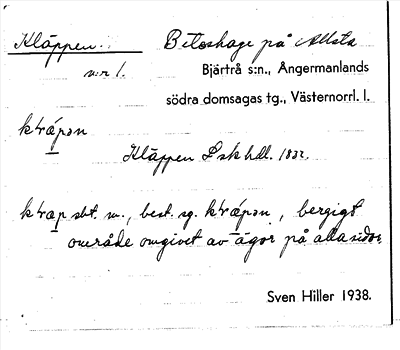 Kläppen. Beteshage på Allsta
n:r 1. Bjärtrå s:n., Ångermanlands
södra domsagas tg., Västernorrl. l.
Kläppen L skhdl. 1832.
sbt. m., best. sg. , bergigt
område omgivet av ägor på alla sidor.
Sven Hiller 1938.